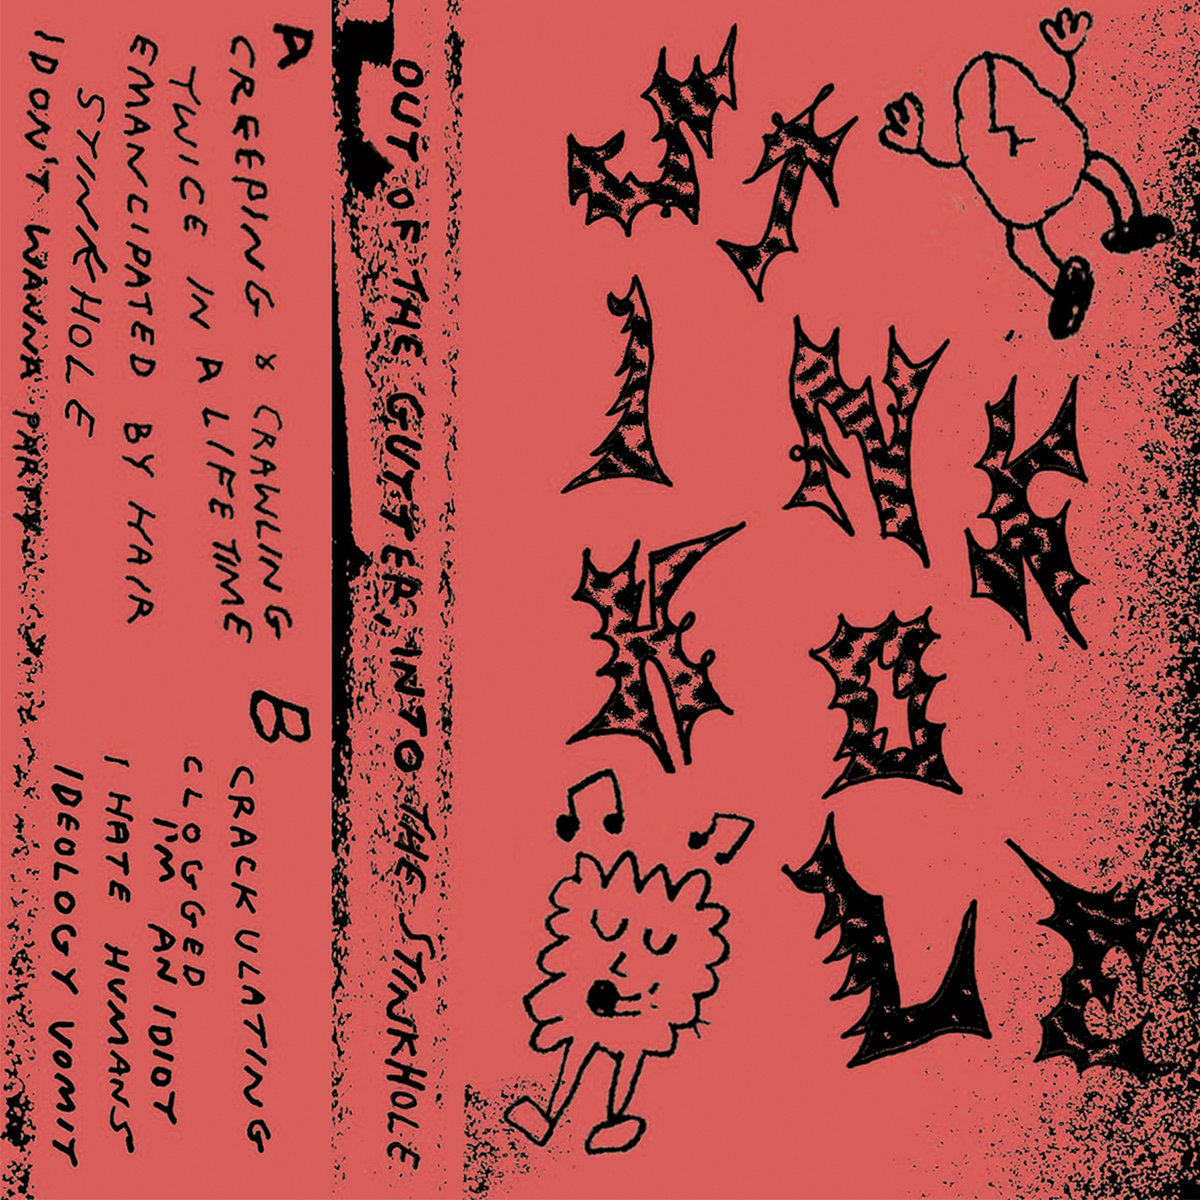 A
CREEPING & CRAWLING
TWICE IN A LIFETIME
EMANCIPATED BY HAIR
STINKHOLE
I DON'T WANNA PARTY
B
CRACKULATING
CLOGGED
I'M AN IDIOT
I HATE HUMANS
IDEOLOGY VOMIT
OUT OF THE GUTTER, INTO THE STINKHOLE
ST
INK
HO
LE